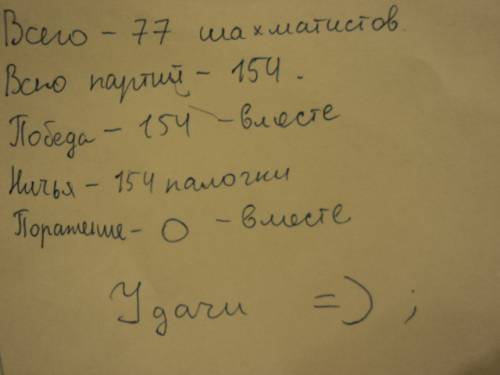 Всего - 77 шахматистов.
Всего партий - 154.
Победа - 154 - вместе
Ничья - 154 палочки
Поражение - 0 - вместе
Удачи =) ;